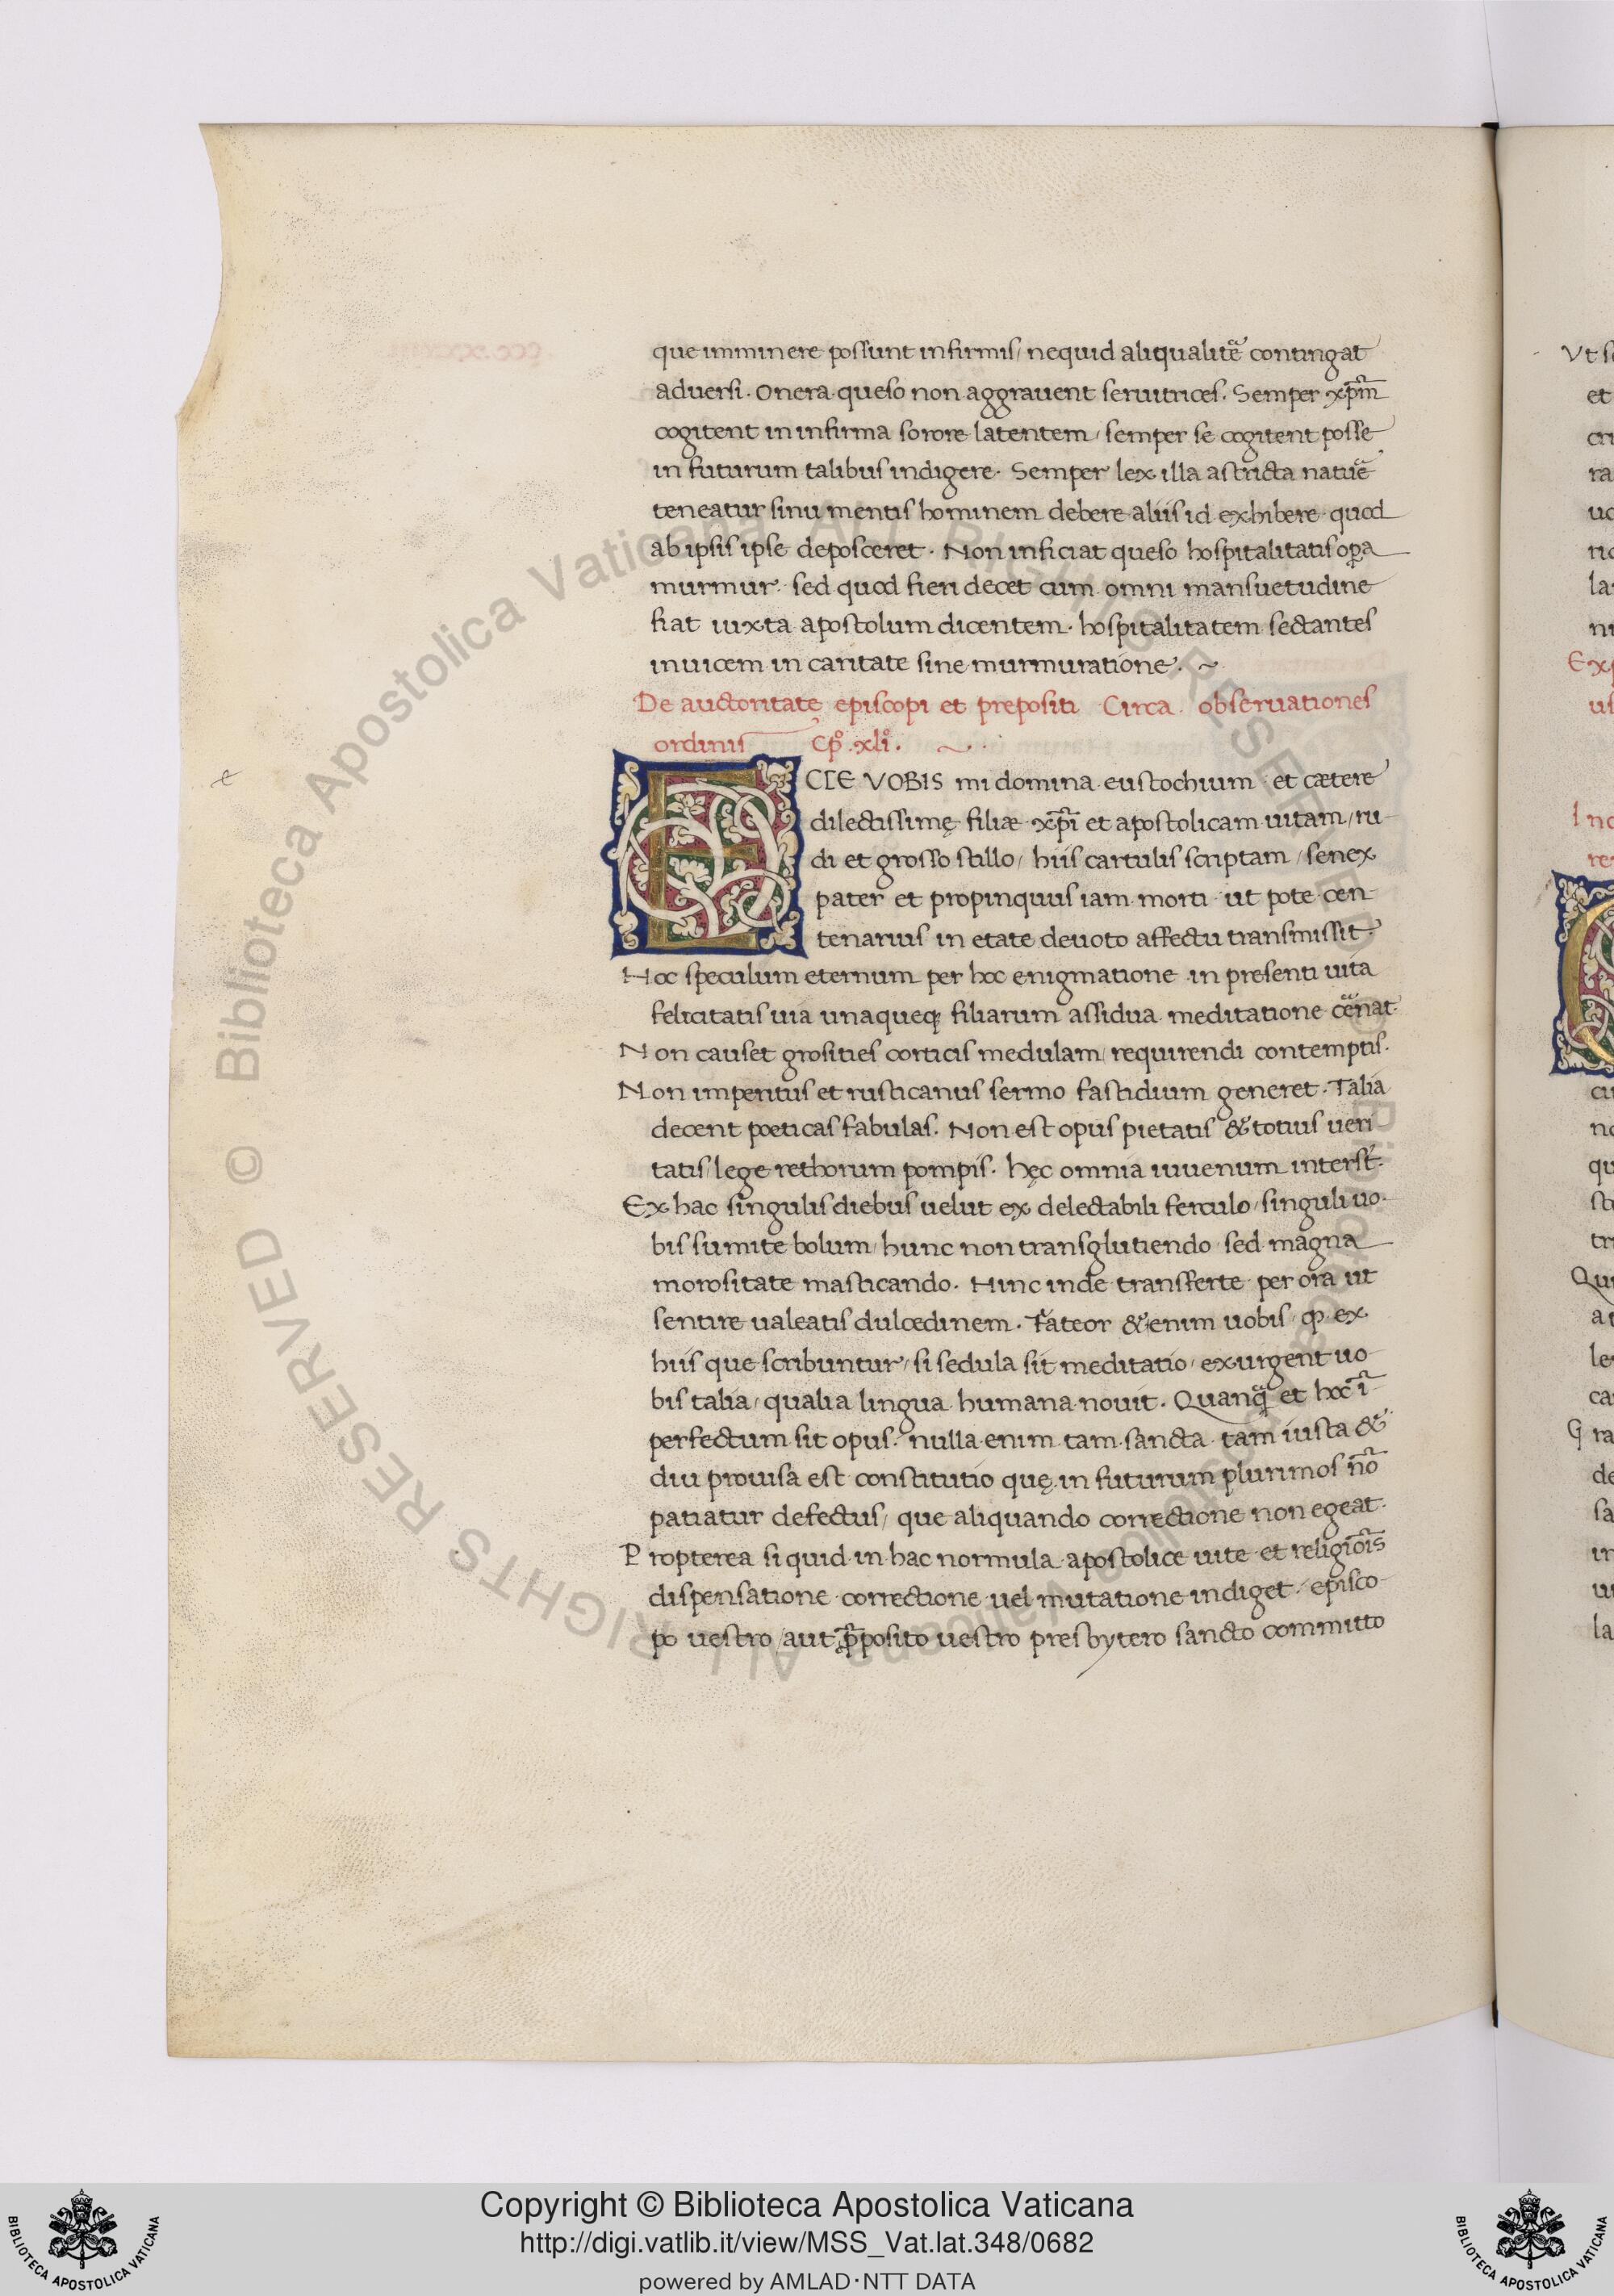 que imminere possunt infirmis / nequid aliqualitẽ contingat
aduersi. Onera queso non aggrauent seruitrices. Semper xp̄m
cogitent in infirma sorore latentem / semper se cogitent posse
in futurum talibus indigere. Semper lex illa astricta natuẽ
teneatur sinu mentis hominem debere aliis id exhibere quod
ab ipsis ipse deposceret. Non inficiat queso hospitalitatis oꝑa
murmur. sed quod fieri decet cum omni mansuetudine
fiat iuxta apostolum dicentem. hospitalitatem sectantes
inuicem in caritate sine murmuratione. ~
De auctoritate episcopi et prepositi Circa obseruationes
ordinis Cp̊. xli. ~
ECCE VOBIS mi domina eustochium et cætere
dilectissimę filiæ xp̄i et apostolicam uitam / ru
di et grosso stillo / hiis cartulis scriptam / senex
pater et propinquus iam morti ut pote cen
tenarius in etate deuoto affectu transmissit
Hoc speculum eternum per hoc enigmatione in presenti uita
felicitatis uia unaqueqꝫ filiarum assidua meditatione cẽnat.
Non causet grosities corticis medulam / requirendi contemptis.
Non imperitus et rusticanus sermo fastidium generet. Talia
decent poeticas fabulas. Non est opus pietatis & totius ueri
tatis / lege rethorum pompis. hęc omnia iuuenum interst̃.
Ex hac singulis diebus uelut ex delectabili ferculo / singuli uo
bis sumite bolum / hunc non transglutiendo sed magna
morositate masticando. Hinc inde transferte per ora ut
sentire ualeatis dulcedinem. Fateor & enim uobis / ꝙ ex
hiis que scribuntur / si sedula sit meditatio / exurgent uo
bis talia / qualia lingua humana nouit. Quanq̃ et hoc ĩ
perfectum sit opus. nulla enim tam sancta tam iusta &
diu prouisa est constitutio quę in futurum plurimos nõ
patiatur defectus / que aliquando correctione non egeat.
Propterea si quid in hac normula apostolice uite et religiõis
dispensatione correctione uel mutatione indiget / episco
po uestro / aut p̃posito uestro presbytero sancto committo
Copyright © Biblioteca Apostolica Vaticana
http://digi.vatlib.it/view/MSS_Vat.lat.348/0682
powered by AMLAD·NTT DATA